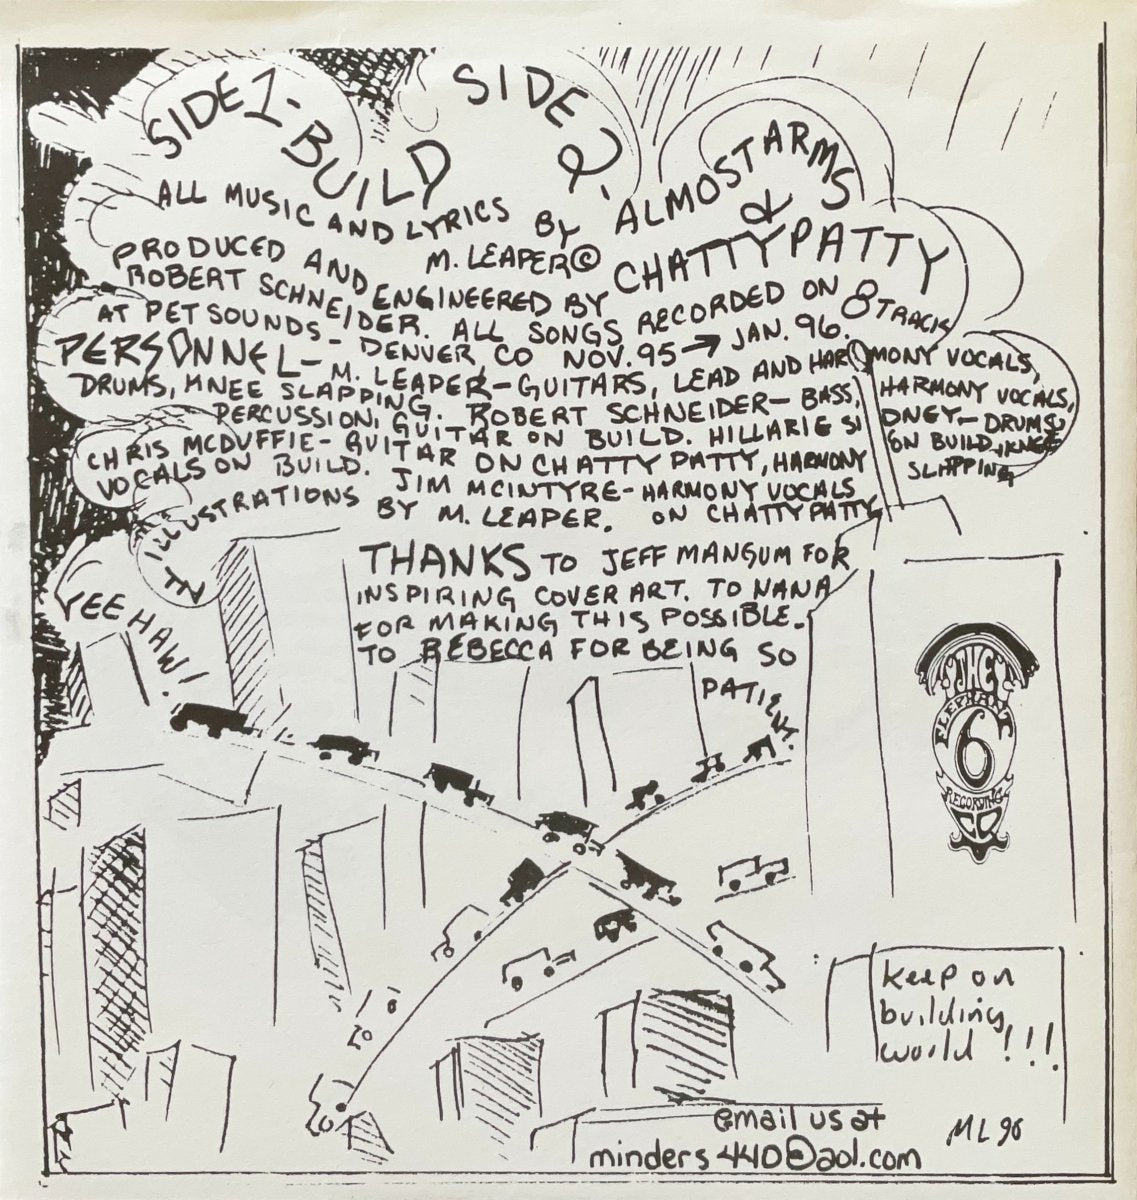 SIDE 1 - BUILD
SIDE 2.
ALMOST ARMS
&
CHATTY PATTY
ALL MUSIC AND LYRICS BY
M. LEAPER©
PRODUCED AND ENGINEERED BY
ROBERT SCHNEIDER. ALL SONGS RECORDED ON 8 TRACK
AT PET SOUNDS - DENVER, CO NOV. 95 → JAN. 96.
PERSONNEL - M. LEAPER - GUITARS, LEAD AND HARMONY VOCALS,
DRUMS, KNEE SLAPPING. ROBERT SCHNEIDER - BASS, HARMONY VOCALS,
PERCUSSION, GUITAR ON BUILD. HILLARIE SIDNEY - DRUMS
ON BUILD, KNEE
SLAPPING
CHRIS MCDUFFIE - GUITAR ON CHATTY PATTY, HARMONY
VOCALS ON BUILD. JIM MCINTYRE - HARMONY VOCALS
ON CHATTY PATTY
ALL ILLUSTRATIONS BY M. LEAPER.
YEE HAW!
THANKS TO JEFF MANGUM FOR
INSPIRING COVER ART. TO NANA
FOR MAKING THIS POSSIBLE.
TO REBECCA FOR BEING SO
PATIENT.
THE
ELEPHANT
6
RECORDING
CO
keep on
building
world!!!
email us at
minders440@aol.com
ML 96